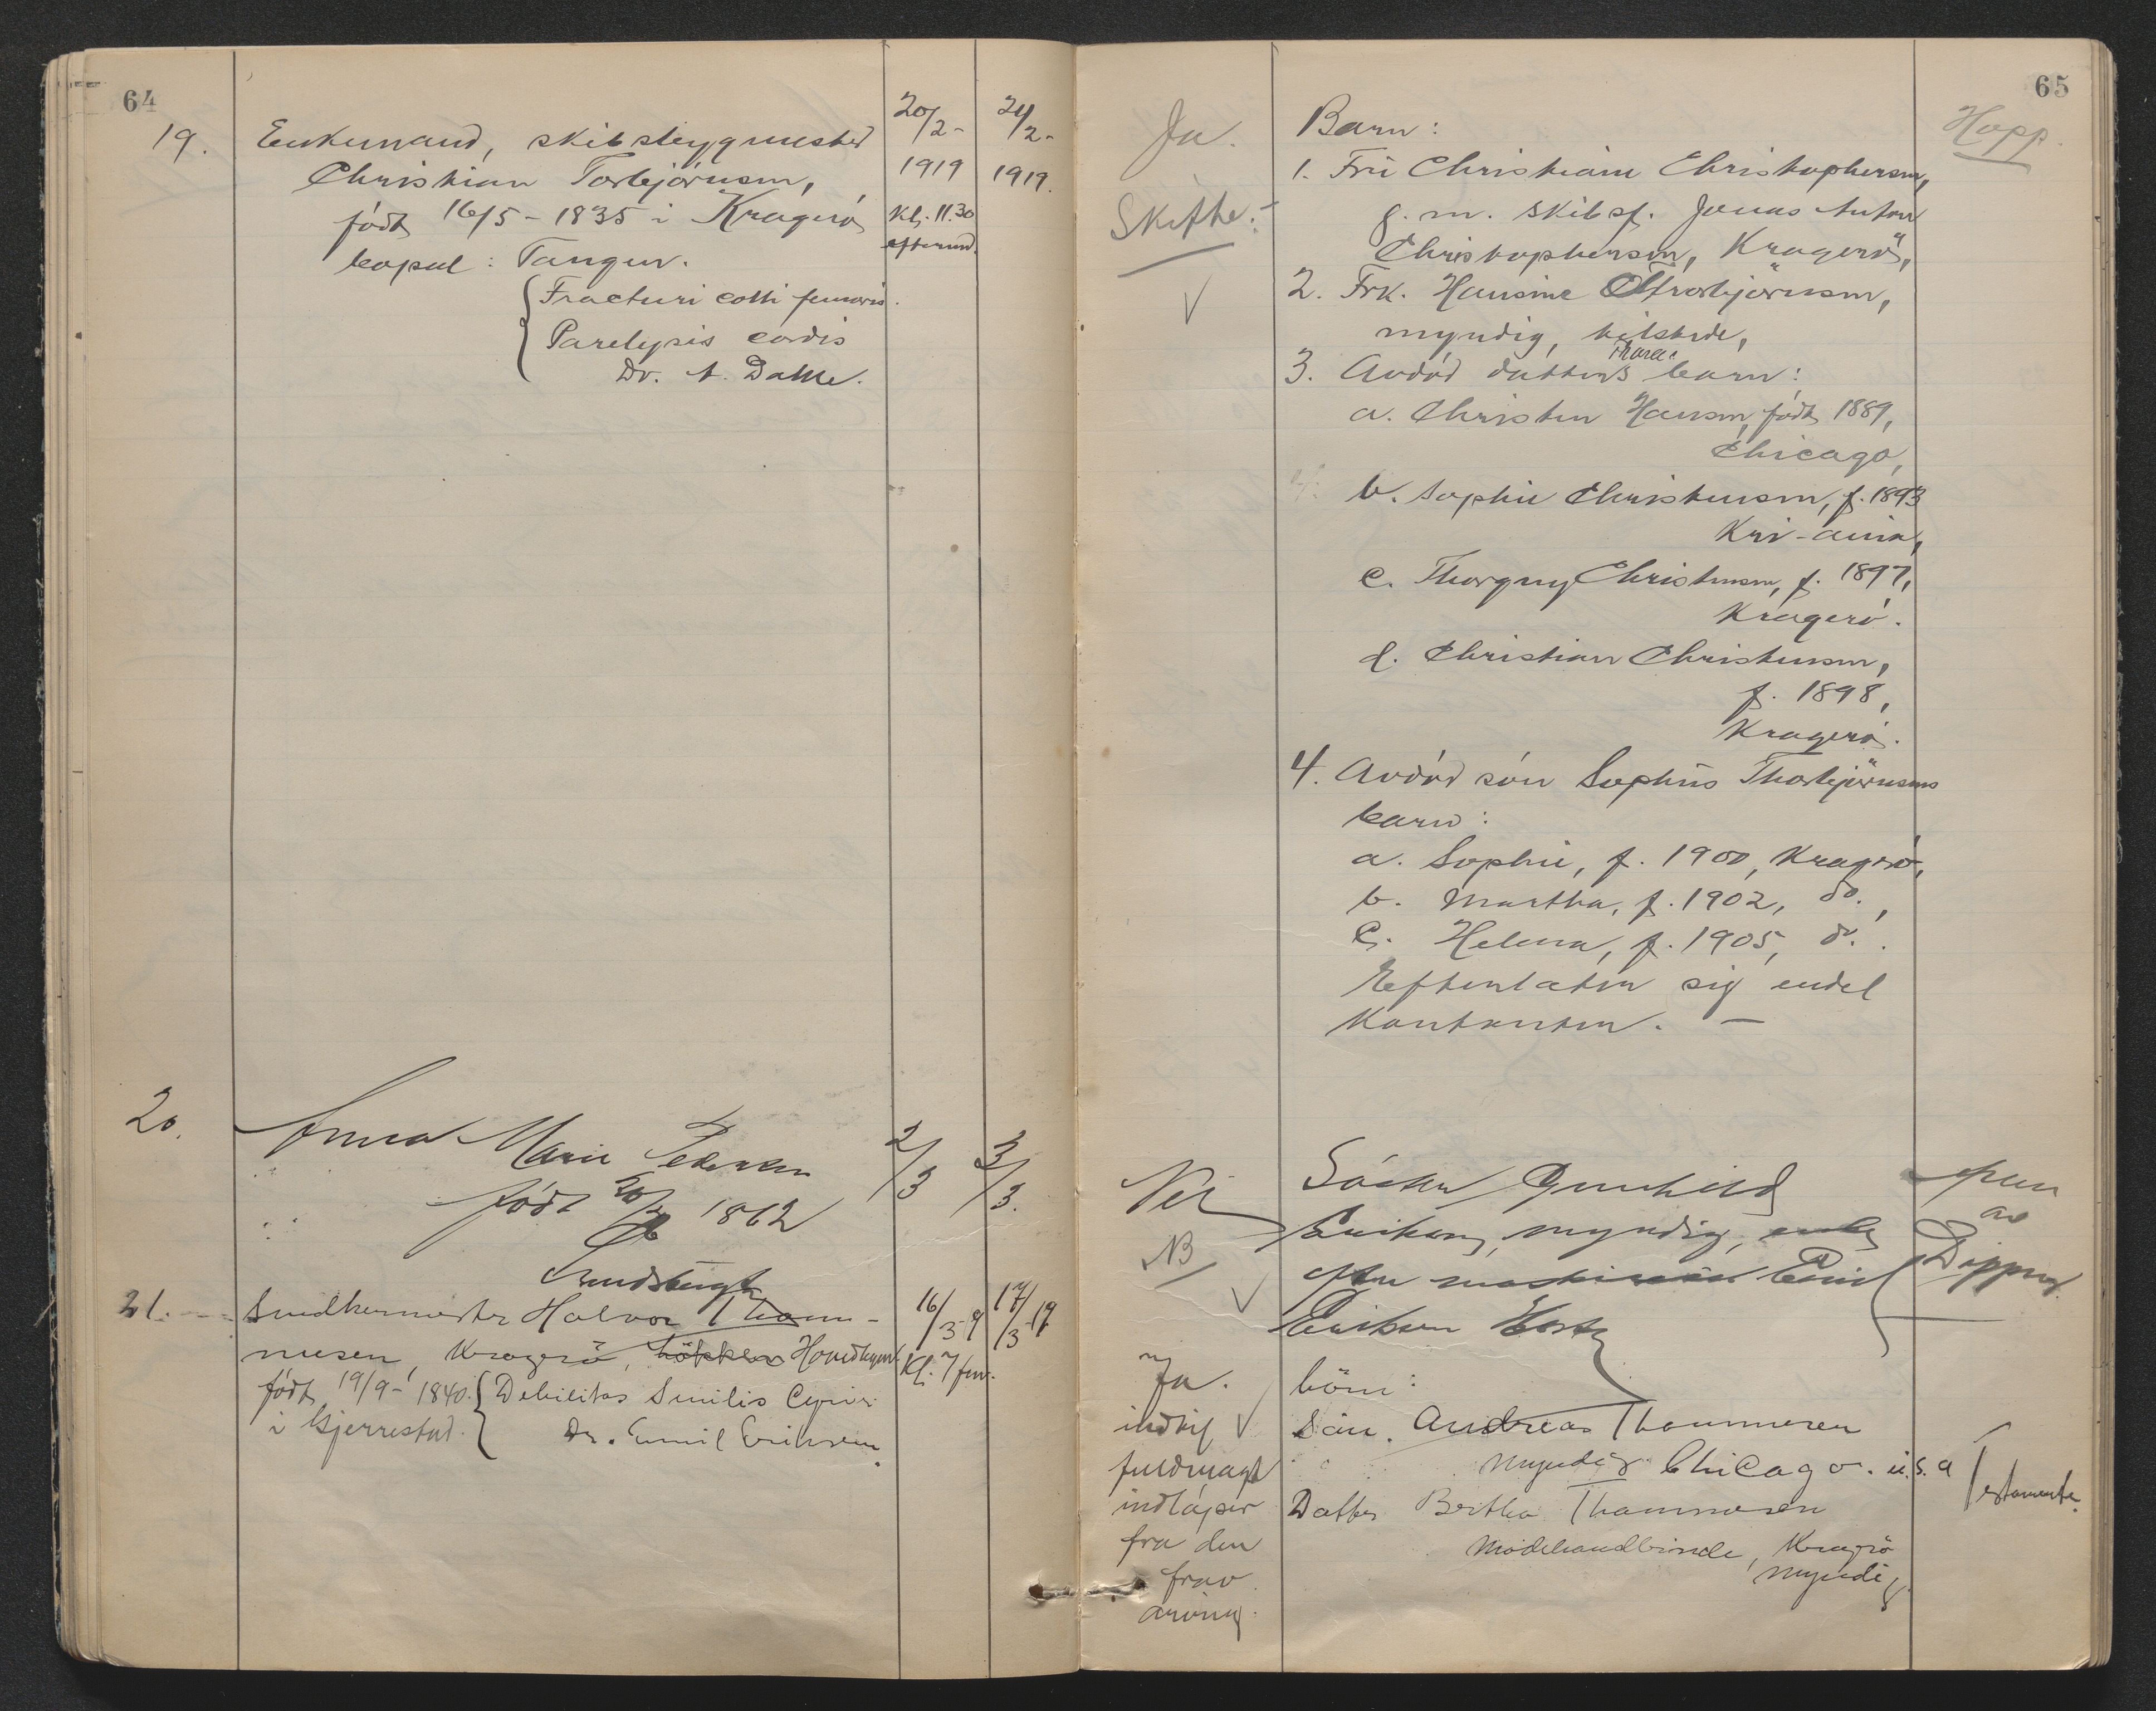 64
19.
Enkemand, skibsbygmester
Christian Torbjörnsen,
født 16/5-1835 i Kragerö
bopæl: Tangen.
Fracturi colli femoris.
Paralysis cordis
Dr. A. Dahle.
20/2-
1919
Kl. 11.30
efterm.
24/2-
1919.
20.
Anna Marie Pedersen
født 20/ 1862
2/3
3/3.
21.
Smedkermester Halvor Tham-
mesen, Kragerö,
født 19/9-1840.
i Gjerrestad.
Debilitas Senilis Cpvir.
Dr. Emil Eriksen.
16/3-9
Kl. 7 fm.
17/3-19
65
Ja.
Skifte.
Hopp.
Barn:
1. Fru Christiane Christophersen,
g. m. skibsf. Jonas Anton
Christophersen, Kragerö,
2. Frk. Hansine Thorbjörnsen,
myndig, tilstede,
3. Avdöd datters barn:
a. Christen Hansen, født 1889,
Chicago,
b. Sophie Christensen, f. 1893
Kri-ania,
c. Thorguy Christensen, f. 1897,
Kragerö.
d. Christian Christensen,
f. 1898,
Kragerö.
4. Avdöd sön Sophus Thorbjörnsens
barn:
a. Sophie, f. 1900, Kragerö,
b. Martha, f. 1902, do.,
c. Helena, f. 1905, do.
Efterlater sig endel
kontanter. —
Nei
NB
Söster Gunhild
Eriksen, myndig, enke
efter maskinist Emil
Eriksen
Ja.
indtil
fuldmagt
indløper
fra den
frav
arving.
börn:
Sön. Andreas Thommesen
Myndig Chicago. U.S.A
Datter Bertha Thommesen
Modehandlerinde, Kragerö
Myndig.
Testamente.